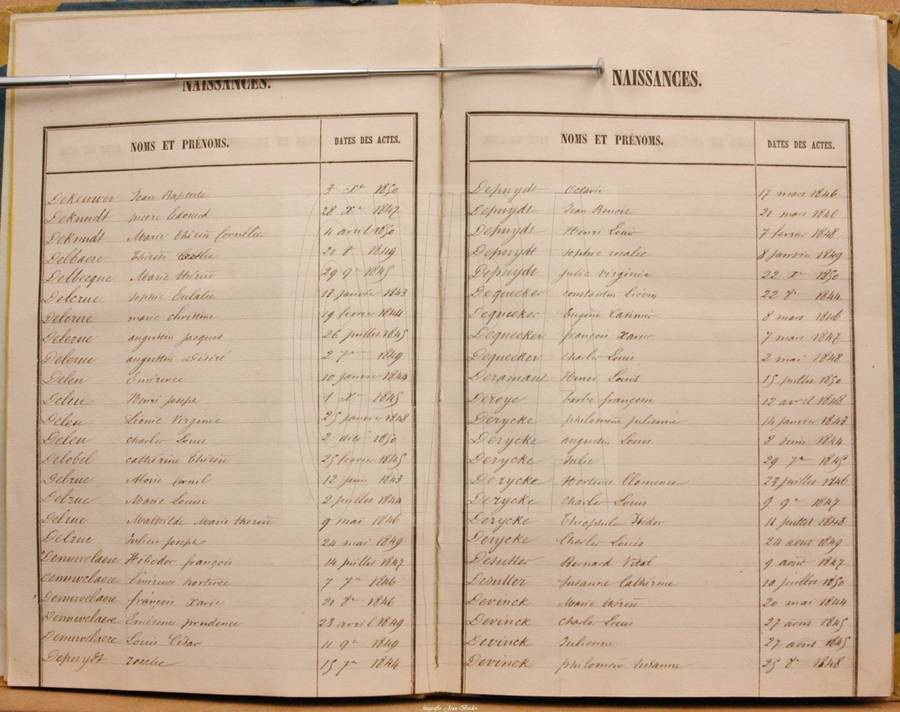 NAISSANCES.
NOMS ET PRÉNOMS. DATES DES ACTES.
Dekeuwer Jean Baptiste 3 Xe 1850
Deknudt pierre Edouard 28 Xe 1847
Deknudt Marie thérèse Cornélie 4 avril 1850
Delbaere thérèse 21 8e 1849
Delbecque Marie thérèse 29 9e 1845
Delcrue sophie Eulalie 17 janvier 1843
Delerue marie christine 19 fevrier 1844
Delerue augustin jacques 26 juillet 1845
Delerue augustin Désiré 2 7e 1849
Deleu Émérence 10 janvier 1844
Deleu Henri joseph 1 Xe 1845
Deleu Léonie Virginie 25 janvier 1848
Deleu charles Louis 2 1850
Delobel cathérine thérèse 25 fevrier 1845
Delrue Aloïse 12 juin 1843
Delrue Marie Louise 2 juillet 1844
Delrue Mathilde Marie therèse 9 mai 1846
Delrue Julien joseph 24 mai 1849
Demuwelaere Héliodor françois 14 juillet 1847
Demuwelaere Émérence hortence 7 7e 1846
Demuwelaere françois Xavier 21 8e 1846
Demuwelaere Émérence prudence 23 avril 1849
Demuwelaere Louis César 11 9e 1849
Depuydt rosalie 15 7e 1844
NAISSANCES.
NOMS ET PRÉNOMS. DATES DES ACTES.
Depuydt Octavie 17 mars 1846
Depuydt Jean Benoit 21 mars 1846
Depuydt Henri Louis 7 fevrier 1848
Depuydt sophie rosalie 8 janvier 1849
Depuydt julie virginie 22 Xe 1850
Dequeeker constantin 22 8e 1844
Dequeeker Eugène Casimir 8 mars 1846
Dequeeker françois Xavier 7 mars 1847
Dequeeker charles Louis 2 mai 1848
Deramaut Henri Louis 15 juillet 1850
Deroye barbe françoise 12 avril 1848
Derycke philomène julienne 14 janvier 1843
Derycke augustin Louis 8 juin 1844
Derycke Julie 29 7e 1845
Derycke Hortense Clémence 23 juillet 1846
Derycke Charles Louis 9 9e 1847
Derycke Théophile Isidor 11 juillet 1848
Derycke Charles Louis 24 aout 1849
Desutter Bernard Vital 9 aout 1847
Desutter Susanne Cathérine 10 juillet 1850
Devinck Marie thérèse 20 mai 1844
Devinck charles Louis 27 aout 1845
Devinck Julienne 27 aout 1845
Devinck philomène susanne 25 8e 1848